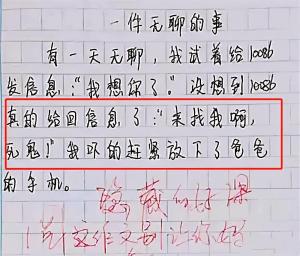 一件无聊的事
有一天无聊，我试着给10086
发信息："我想你了。"没想到10086
真的给回信息了："来找我啊，
死鬼！"我吓的赶紧放下了爸爸
的手机。
隐藏的好深
作文别让你妈